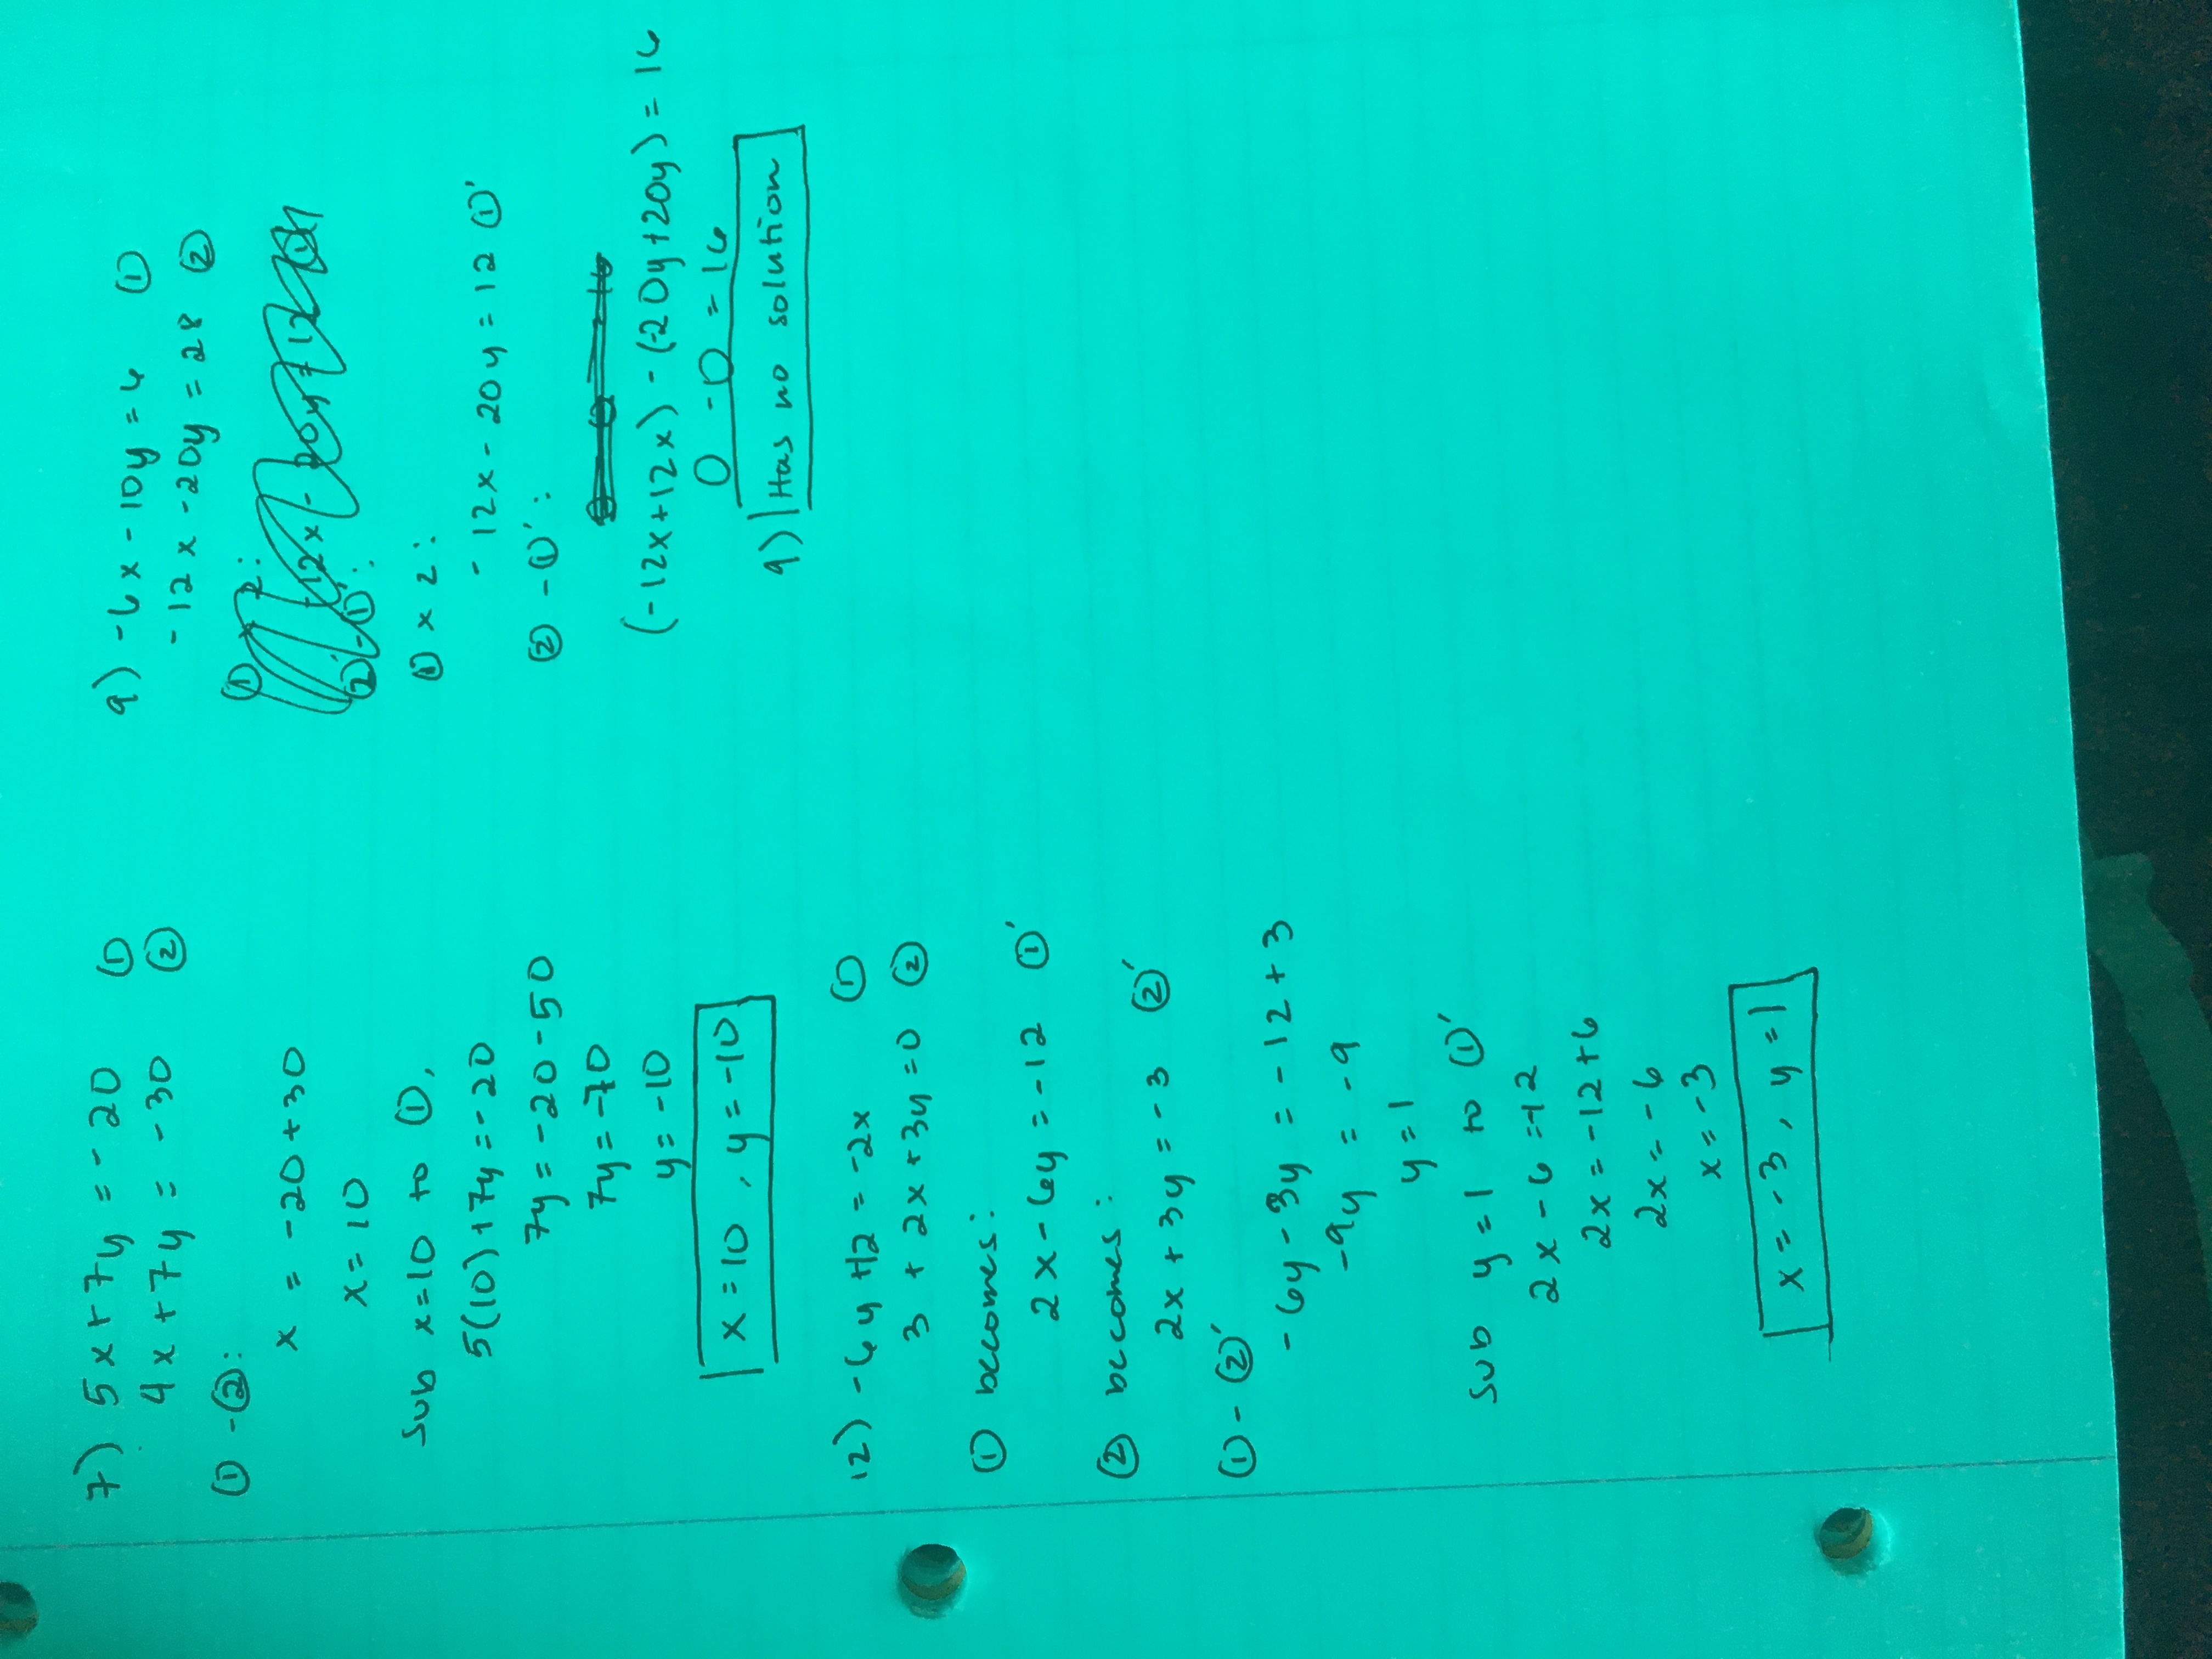 7) 5x+7y=-20 ①
4x+7y=-30 ②
①-②:
x = -20+30
x=10
Sub x=10 to ①,
5(10)+7y=-20
7y=-20-50
7y=-70
y=-10
x=10, y=-10
12) -6y+12=-2x ①
3+2x+3y=0 ②
① becomes:
2x-6y=-12 ①'
② becomes:
2x+3y=-3 ②'
①-②'
-6y-3y=-12+3
-9y=-9
y=1
Sub y=1 to ①'
2x-6=-12
2x=-12+6
2x=-6
x=-3
x=-3, y=1
9) -6x-10y=6 ①
-12x-20y=28 ②
① x 2:
-12x-20y=12 ①'
②-①':
(-12x+12x)-(-20y+20y)=16
0-0=16
9) Has no solution